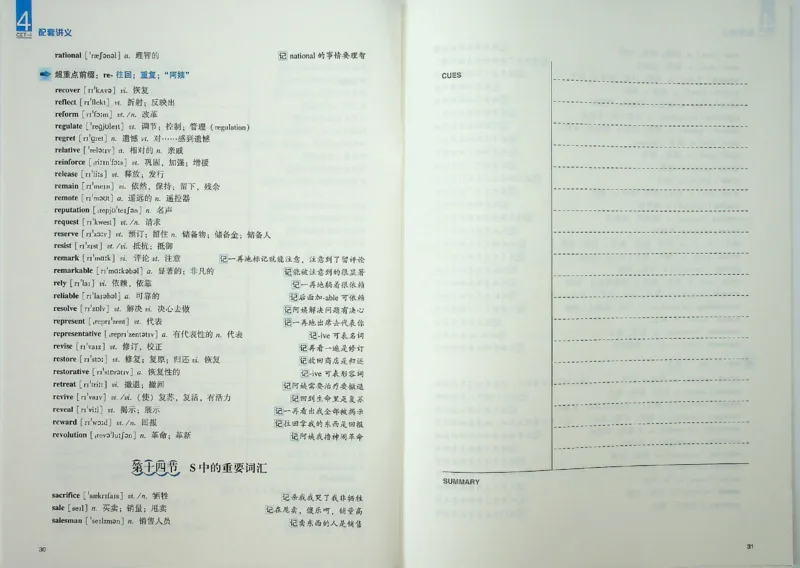 4
CET-4
配套讲义
rational [ˈræʃənəl] a. 理智的 记 national 的事情要理智
超重点前缀：re- 往回；重复；“阿姨”
recover [rɪˈkʌvə] vi. 恢复
reflect [rɪˈflekt] vt. 折射；反映出
reform [rɪˈfɔːm] vt./n. 改革
regulate [ˈreɡjʊleɪt] vt. 调节；控制；管理 (regulation)
regret [rɪˈɡret] n. 遗憾 vt. 对……感到遗憾
relative [ˈrelətɪv] a. 相对的 n. 亲戚
reinforce [ˌriːɪnˈfɔːs] vt. 巩固，加强；增援
release [rɪˈliːs] vt. 释放；发行
remain [rɪˈmeɪn] vi. 依然，保持；留下，残余
remote [rɪˈməʊt] a. 遥远的 n. 遥控器
reputation [ˌrepjʊˈteɪʃən] n. 名声
request [rɪˈkwest] vt./n. 请求
reserve [rɪˈzɜːv] vt. 预订；留住 n. 储备物；储备金；储备人
resist [rɪˈzɪst] vt./vi. 抵抗；抵御
remark [rɪˈmɑːk] vi. 评论 vt. 注意 记一再地标记就能注意，注意到了留评论
remarkable [rɪˈmɑːkəbəl] a. 显著的；非凡的 记能被注意到的很显著
rely [rɪˈlaɪ] vi. 依赖，依靠 记一再地躺着很依赖
reliable [rɪˈlaɪəbəl] a. 可靠的 记后面加-able 可依赖
resolve [rɪˈzɒlv] vt. 解决 vi. 决心去做 记阿姨解决问题有决心
represent [ˌreprɪˈzent] vt. 代表 记一再地出席去代表你
representative [ˌreprɪˈzentətɪv] a. 有代表性的 n. 代表 记-ive 可表名词
revise [rɪˈvaɪz] vt. 修订，校正 记再看一遍是修订
restore [rɪˈstɔː] vt. 修复；复原；归还 vi. 恢复 记放回商店是归还
restorative [rɪˈstɒrətɪv] a. 恢复性的 记-ive 可表形容词
retreat [rɪˈtriːt] vi. 撤退；撤回 记阿姨需要治疗要撤退
revive [rɪˈvaɪv] vt./vi. （使）复苏，复活，有活力 记回到生命里是复苏
reveal [rɪˈviːl] vt. 揭示；展示 记一再看出我全部被揭示
reward [rɪˈwɔːd] vt./n. 回报 记往回拿我的东西是回报
revolution [ˌrevəˈluːʃən] n. 革命；革新 记阿姨我撸神闹革命
第十四节 S 中的重要词汇
sacrifice [ˈsækrɪfaɪs] vt./n. 牺牲 记杀我我哭了我非牺牲
sale [seɪl] n. 买卖；销量；甩卖 记在甩卖，傻乐呵，销量高
salesman [ˈseɪlzmən] n. 销售人员 记卖东西的人是销售
30
CUES
SUMMARY
31